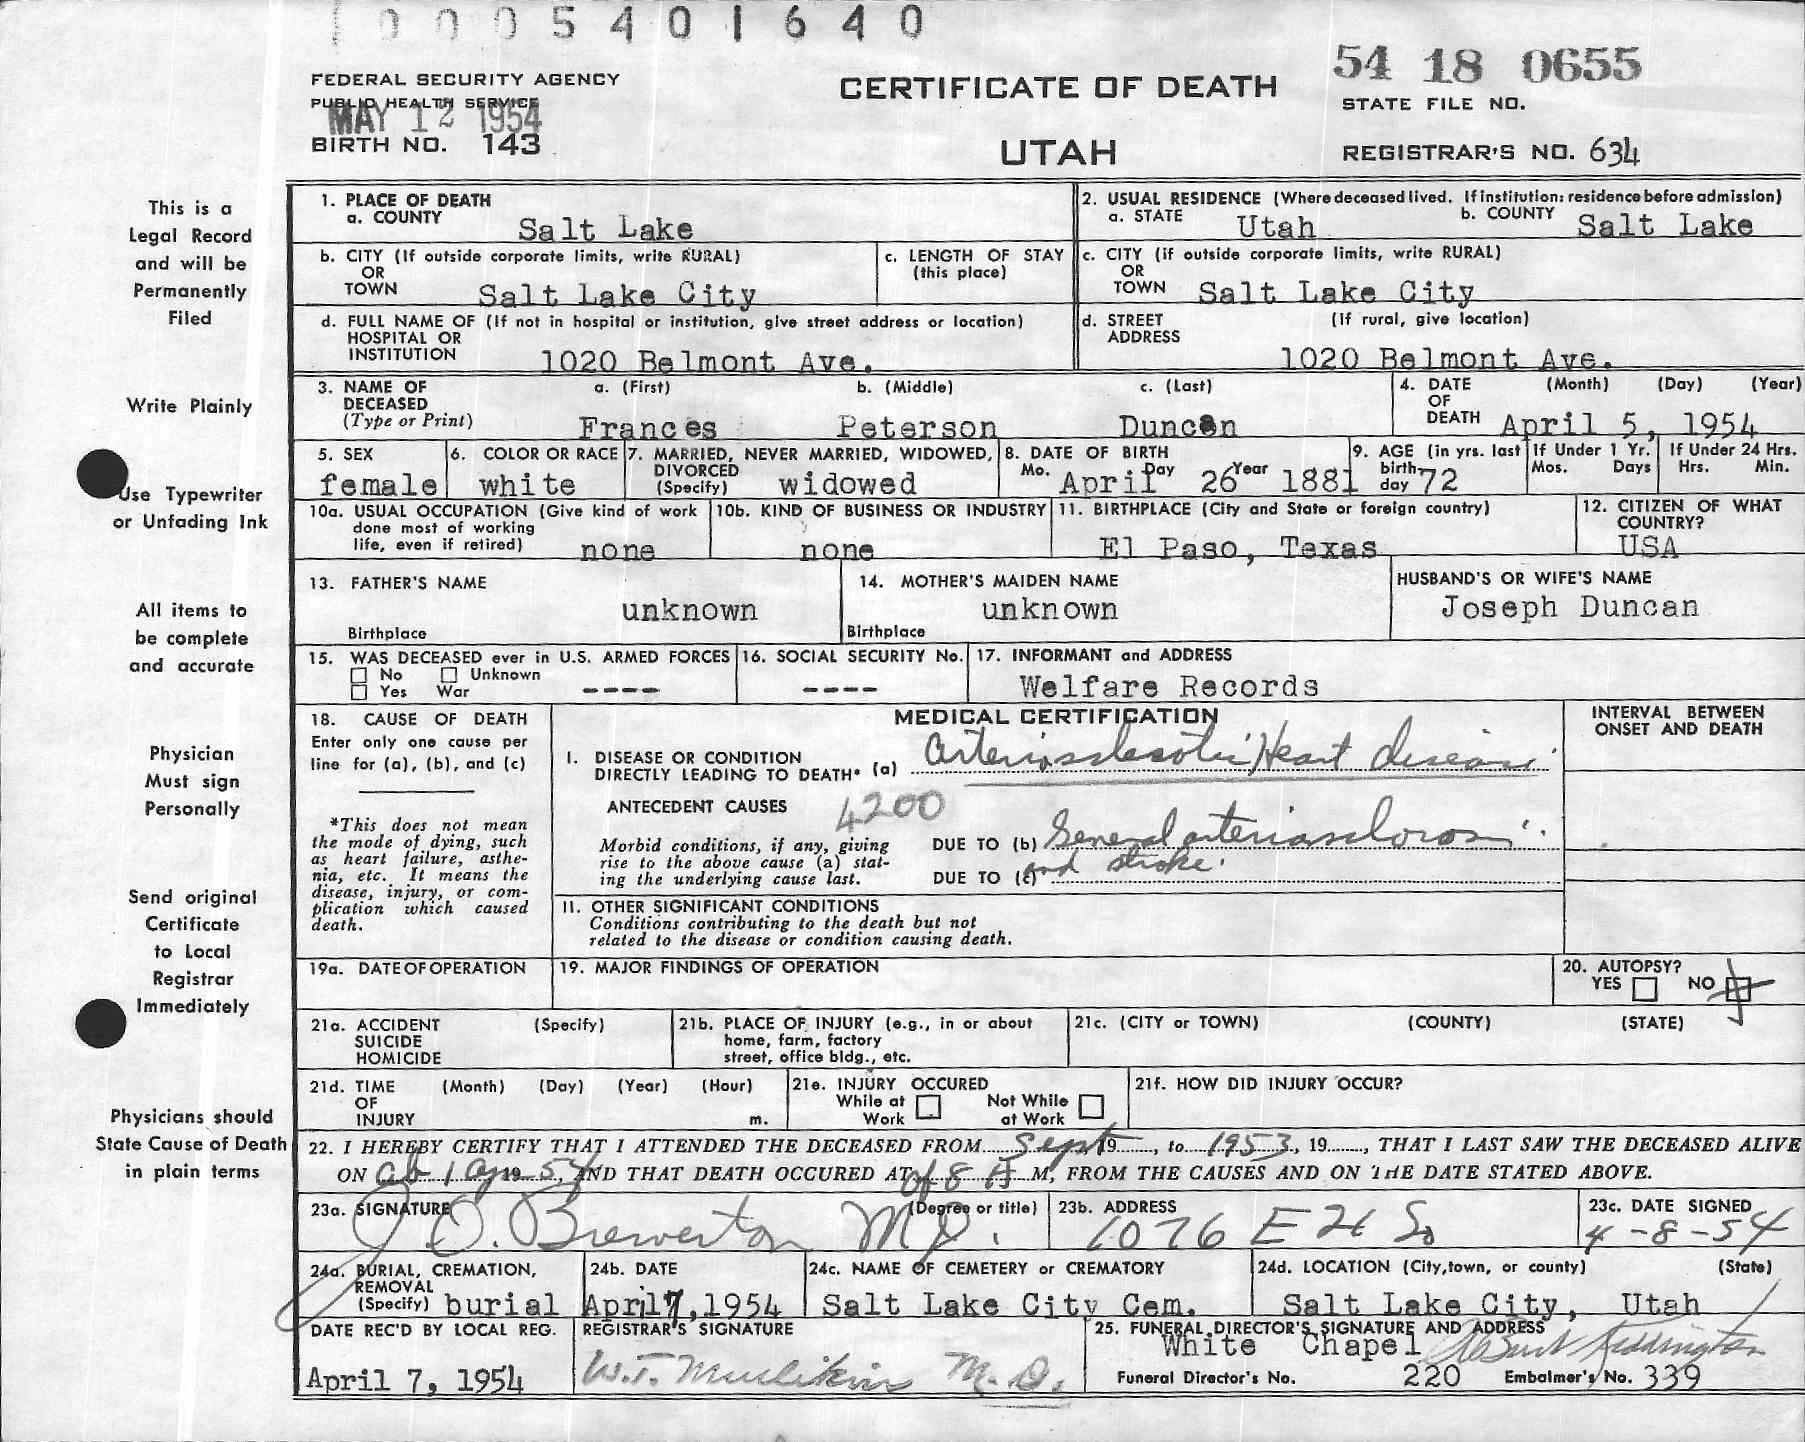 1 0 0 0 5 4 0 1 6 4 0
54 18 0655
FEDERAL SECURITY AGENCY
PUBLIC HEALTH SERVICE
MAY 12 1954
BIRTH NO. 143
CERTIFICATE OF DEATH
UTAH
STATE FILE NO.
REGISTRAR'S NO. 634
This is a
Legal Record
and will be
Permanently
Filed
Write Plainly
Use Typewriter
or Unfading Ink
All items to
be complete
and accurate
Physician
Must sign
Personally
Send original
Certificate
to Local
Registrar
Immediately
Physicians should
State Cause of Death
in plain terms
1. PLACE OF DEATH
a. COUNTY Salt Lake
2. USUAL RESIDENCE (Where deceased lived. If institution: residence before admission)
a. STATE Utah b. COUNTY Salt Lake
b. CITY (If outside corporate limits, write RURAL)
OR
TOWN Salt Lake City
c. LENGTH OF STAY
(this place)
c. CITY (if outside corporate limits, write RURAL)
OR
TOWN Salt Lake City
d. FULL NAME OF (If not in hospital or institution, give street address or location)
HOSPITAL OR
INSTITUTION 1020 Belmont Ave.
d. STREET (If rural, give location)
ADDRESS
1020 Belmont Ave.
3. NAME OF a. (First) b. (Middle) c. (Last)
DECEASED
(Type or Print) Frances Peterson Duncan
4. DATE (Month) (Day) (Year)
OF
DEATH April 5, 1954
5. SEX
female
6. COLOR OR RACE
white
7. MARRIED, NEVER MARRIED, WIDOWED,
DIVORCED
(Specify) widowed
8. DATE OF BIRTH
Mo. Day Year
April 26 1881
9. AGE (in yrs. last
birth-
day 72
If Under 1 Yr.
Mos. Days
If Under 24 Hrs.
Hrs. Min.
10a. USUAL OCCUPATION (Give kind of work
done most of working
life, even if retired) none
10b. KIND OF BUSINESS OR INDUSTRY
none
11. BIRTHPLACE (City and State or foreign country)
El Paso, Texas
12. CITIZEN OF WHAT
COUNTRY?
USA
13. FATHER'S NAME
unknown
Birthplace
14. MOTHER'S MAIDEN NAME
unknown
Birthplace
HUSBAND'S OR WIFE'S NAME
Joseph Duncan
15. WAS DECEASED ever in U.S. ARMED FORCES
No Unknown
Yes War ----
16. SOCIAL SECURITY No.
----
17. INFORMANT and ADDRESS
Welfare Records
18. CAUSE OF DEATH
Enter only one cause per
line for (a), (b), and (c)
*This does not mean
the mode of dying, such
as heart failure, asthe-
nia, etc. It means the
disease, injury, or com-
plication which caused
death.
MEDICAL CERTIFICATION
I. DISEASE OR CONDITION
DIRECTLY LEADING TO DEATH* (a) Arteriosclerotic Heart disease
ANTECEDENT CAUSES 4200
Morbid conditions, if any, giving
rise to the above cause (a) stat-
ing the underlying cause last.
DUE TO (b) General arteriosclerosis
and stroke.
DUE TO (c)
II. OTHER SIGNIFICANT CONDITIONS
Conditions contributing to the death but not
related to the disease or condition causing death.
INTERVAL BETWEEN
ONSET AND DEATH
19a. DATE OF OPERATION
19. MAJOR FINDINGS OF OPERATION
20. AUTOPSY?
YES NO
21a. ACCIDENT (Specify)
SUICIDE
HOMICIDE
21b. PLACE OF INJURY (e.g., in or about
home, farm, factory
street, office bldg., etc.
21c. (CITY or TOWN) (COUNTY) (STATE)
21d. TIME (Month) (Day) (Year) (Hour)
OF
INJURY m.
21e. INJURY OCCURED
While at Not While
Work at Work
21f. HOW DID INJURY OCCUR?
22. I HEREBY CERTIFY THAT I ATTENDED THE DECEASED FROM Sept 19 , to 1953, 19 , THAT I LAST SAW THE DECEASED ALIVE
ON ab 1 Apr 19 54, AND THAT DEATH OCCURED AT of 8 A M, FROM THE CAUSES AND ON THE DATE STATED ABOVE.
23a. SIGNATURE (Degree or title)
J O. Brewerton M D.
23b. ADDRESS
1076 E 21 So
23c. DATE SIGNED
4-8-54
24a. BURIAL, CREMATION,
REMOVAL
(Specify) burial
24b. DATE
April 7, 1954
24c. NAME OF CEMETERY or CREMATORY
Salt Lake City Cem.
24d. LOCATION (City, town, or county) (State)
Salt Lake City, Utah
DATE REC'D BY LOCAL REG.
April 7, 1954
REGISTRAR'S SIGNATURE
W.T. Muellikin M.D.
25. FUNERAL DIRECTOR'S SIGNATURE AND ADDRESS
White Chapel
Funeral Director's No. 220 Embalmer's No. 339